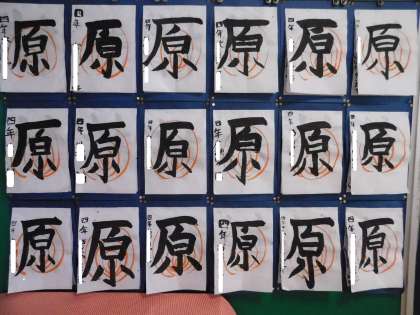 原 原 原 原 原 原
四年 四年 四年 四年 四年 四年
原 原 原 原 原 原
四年 四年 四年 四年 四年 四年
原 原 原 原 原 原
四年 四年 四年 四年